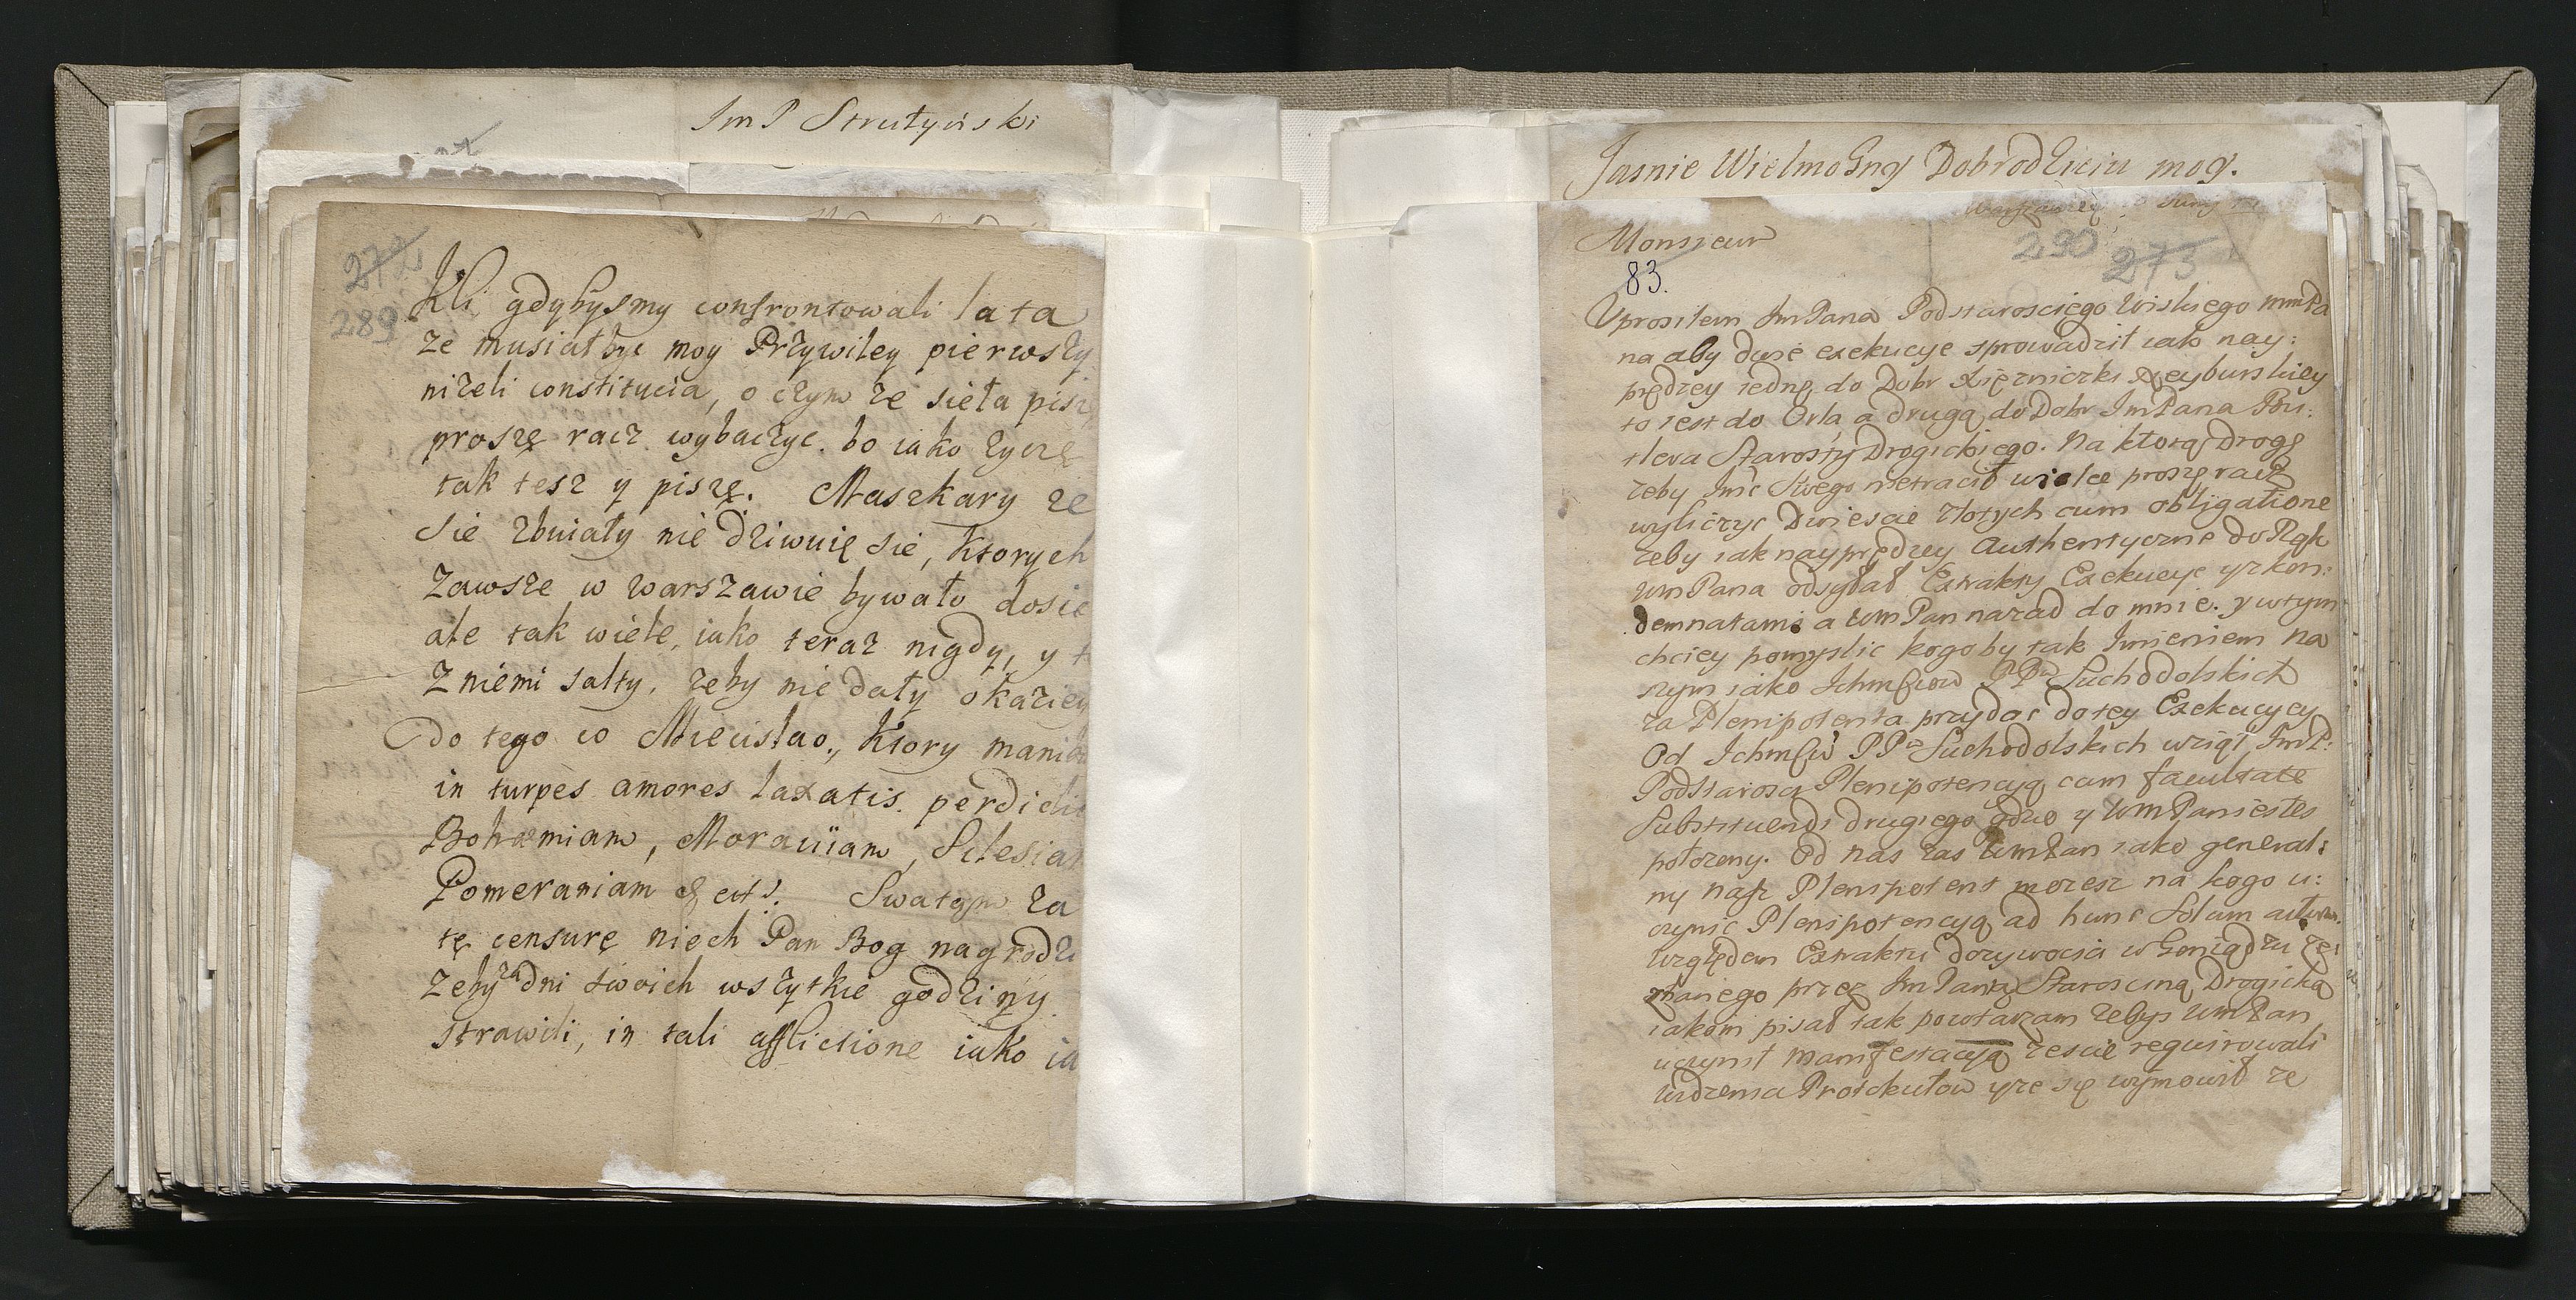 ImP Strutyński
272
289
Kli gdybysmy confrontowali lata
ze musiałbyc moy Przywiley pierwszy
niżeli constitucia, o czym ze sieła pisz
proszę racz wybaczyc. bo iako zyczę
tak tesz y piszę. Maszkary ze
sie zbuiały nie dziwuię sie, ktorych
zawsze w warszawie bywało dosic
ale tak wiele, iako teraz nigdy, y
z niemi salty, zeby nie dały okaziey
do tego co Miecislao, ktory
in turpes amores laxatis perdidi
Bohæmiam, Moraviiam, Silesia
Pomeraniam & cit. Swatym za
tę censurę niech Pan Bog nagrodzi
zeby dni swoich wszytkie godziny
strawili, in tali afflictione iako ia
Jasnie Wielmożny Dobrodzieiu moy.
Monsieur
290 273
83.
Uprosiłem ImPana Podstarosciego Wiskiego mmPa
na aby dwie exekucye sprowadził iako nay:
prędzey iednę do Dobr Xięzniczki Neyburskiey
to iest do Orla a drugą do Dobr ImPana Bu:
tlera Starosty Drogickiego. Na ktorą drogę
zeby Imc Swego nietracił wielce proszę racz
wyliczyc Dwiescie złotych cum obligatione
zeby iak nayprędzey Authentyczne do Rąk
WmPana odsyłał Extrakty Exekucye yzkon:
demnatami a WmPan nazad do mnie. y wtym
chciey pomyslic kogoby tak Imieniem na
szym iako Ichmciow PPw Suchodolskich
za Plenipotenta przydac do tey Exekucyey
Od Ichmciw PPw Suchodolskich wziął ImP:
Podstarosci Plenipotencyą cum facultate
Substituendi drugiego gdzie y WmPan iestes
położony. Od nas zas WmPan iako general:
ny nasz Plenipotent mozesz na kogo u:
czynic Plenipotencyą ad hunc Solum actum.
Względem Extraktu dozywocia w Goniądzu
znanego przez ImPanią Staroscinę Drogicką
iakom pisał tak powtarzam zebys WmPan
uczynił manifestacyą zescie requirowali
widzenia Protokułow yze się wymowił ze